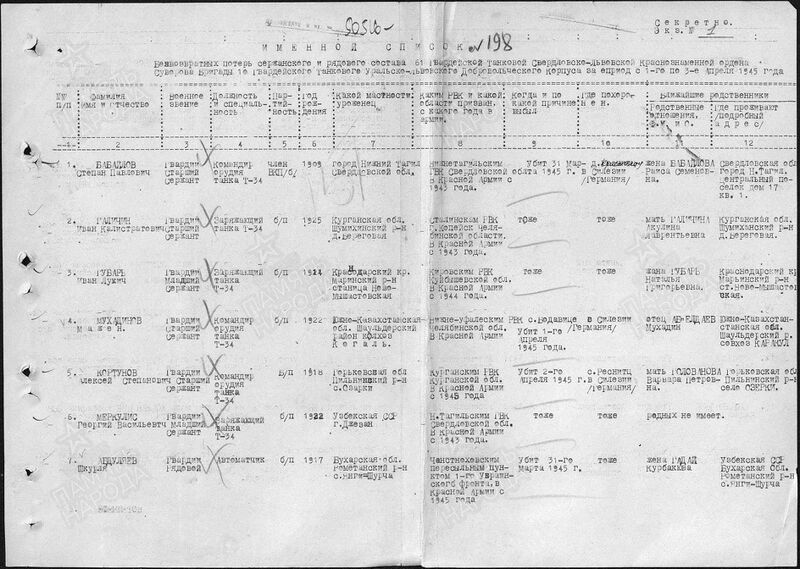 Секретно.
Экз.№ 1
50516
198
ИМЕННОЙ СПИСОК
Безвозвратных потерь сержанского и рядового состава 61 Гвардейской Танковой Свердловско-Львовской Краснознаменной ордена
Суворова Бригады 10 Гвардейского Танкового Уральско-Львовского Добровольческого корпуса за период с 1-го по 3-е Апреля 1945 года
№№ п/п
Фамилия имя и отчество
Военное звание
Должность и специаль- ность
Пар- тий- ность
Год рож- дения
Какой местности уроженец
Каким РВК и какой области призван. с какого года в армии.
Когда и по какой причине выбыл
Где похоро- нен.
Ближайшие родственники
Родственные отношения, Ф.И. и О.
Где проживают /подробный адрес/
1 2 3 4 5 6 7 8 9 10 11 12
1. БАБАЙЛОВ Гвардии Командир член 1909 город Нижний Тагил Нижнетагильским Убит 31 Мар- д. жена БАБАЙЛОВА Свердловская обл
Степан Павлович Старший орудия ВКП/б/ Свердловской обл. РВК Свердловской обл та 1945 г. в Силезии Раиса Семенов- Город Н.Тагил.
Сержант танка Т-34 В Красной Армии с /Германия/ на. центральный по-
1943 года. селок дом 17
кв. 1.
2. ГАЛИЧИН Гвардии Заряжающий б/п 1925 Курганская обл. Сталинским РВК тоже тоже мать ГАЛИЧИНА Курганская обл.
Иван Калистратвич Старший танка Т-34 Шумихинский р-н г.Копейск Челя- Акулина Шумиханский р-н
Сержант д.Береговая бинской области. Лаврентьевна д.Береговая.
В Красной Армии
с 1943 года.
3. ГУБАРЬ Гвардии Заряжающий б/п 1924 Краснодарский кр. Кировским РВК тоже тоже жена ГУБАРЬ Краснодарский кр
Иван Лукич Младший танка Маринский р-н Куйбышевской обл. Наталья Марьинский р-н
Сержант Т-34 станица Ново- В Красной Армии Григорьевна. ст.Ново-Мышастов
Мышастовская с 1944 года. ская.
4. МУХАДИНОВ Гвардии Командир б/п 1922 Южно-Казахстанская Нижне-Уфалеским РВК с.Бодавице в Силезии отец АБЕЛДАЕВ Южно-Казахстан-
Старший орудия обл. Шаульдерский Челябинской обл. Убит 1-го /Германия/ Мухадин станская обл.
Сержант танка район Колхоз В Красной Армии Апреля Шаульдерский р.
Т-34 Когаль. 1945 года. совхоз КАРАКУЛ
5. КОРТУНОВ Гвардии Командир Б/П 1918 Горьковская обл Курганским РВК Убит 2-го с.Ресниц мать ГОЛОВАНОВА Горьковская обл
Алексей Степанович Старший орудия Пильнинский р-н Курганской обл. Апреля 1945 г. в Силезии Варвара Петров- Пильнинский р-н
Сержант танка с.Озарки В Красной Армии /Германия/ на. село ОЗЕРКИ.
Т-34
6. МЕРКУЛИС Гвардии Заряжающий б/п 1922 Узбекская ССР Н.Тагильским РВК тоже тоже родных не имеет.
Георгий Васильевич Младший танка г.Джеван Свердловской обл.
Сержант Т-34 В Красной Армии
с 1943 года.
7. АБДУЛЯЕВ Гвардии Автоматчик б/п 1917 Бухарская обл. Ченстноховским Убит 31-го тоже жена ГАДАЙ Узбекская ССР
Шкурля Рядовой Рометанский р-н пересыльным пун- Марта 1945 г. Курбакова Бухарская Обл
с.Янги-Шурча ктом 1-го Украин- Рометанский р-н
ского фронта, в с.Янги-Шурча.
Красной Армии с
1945 года